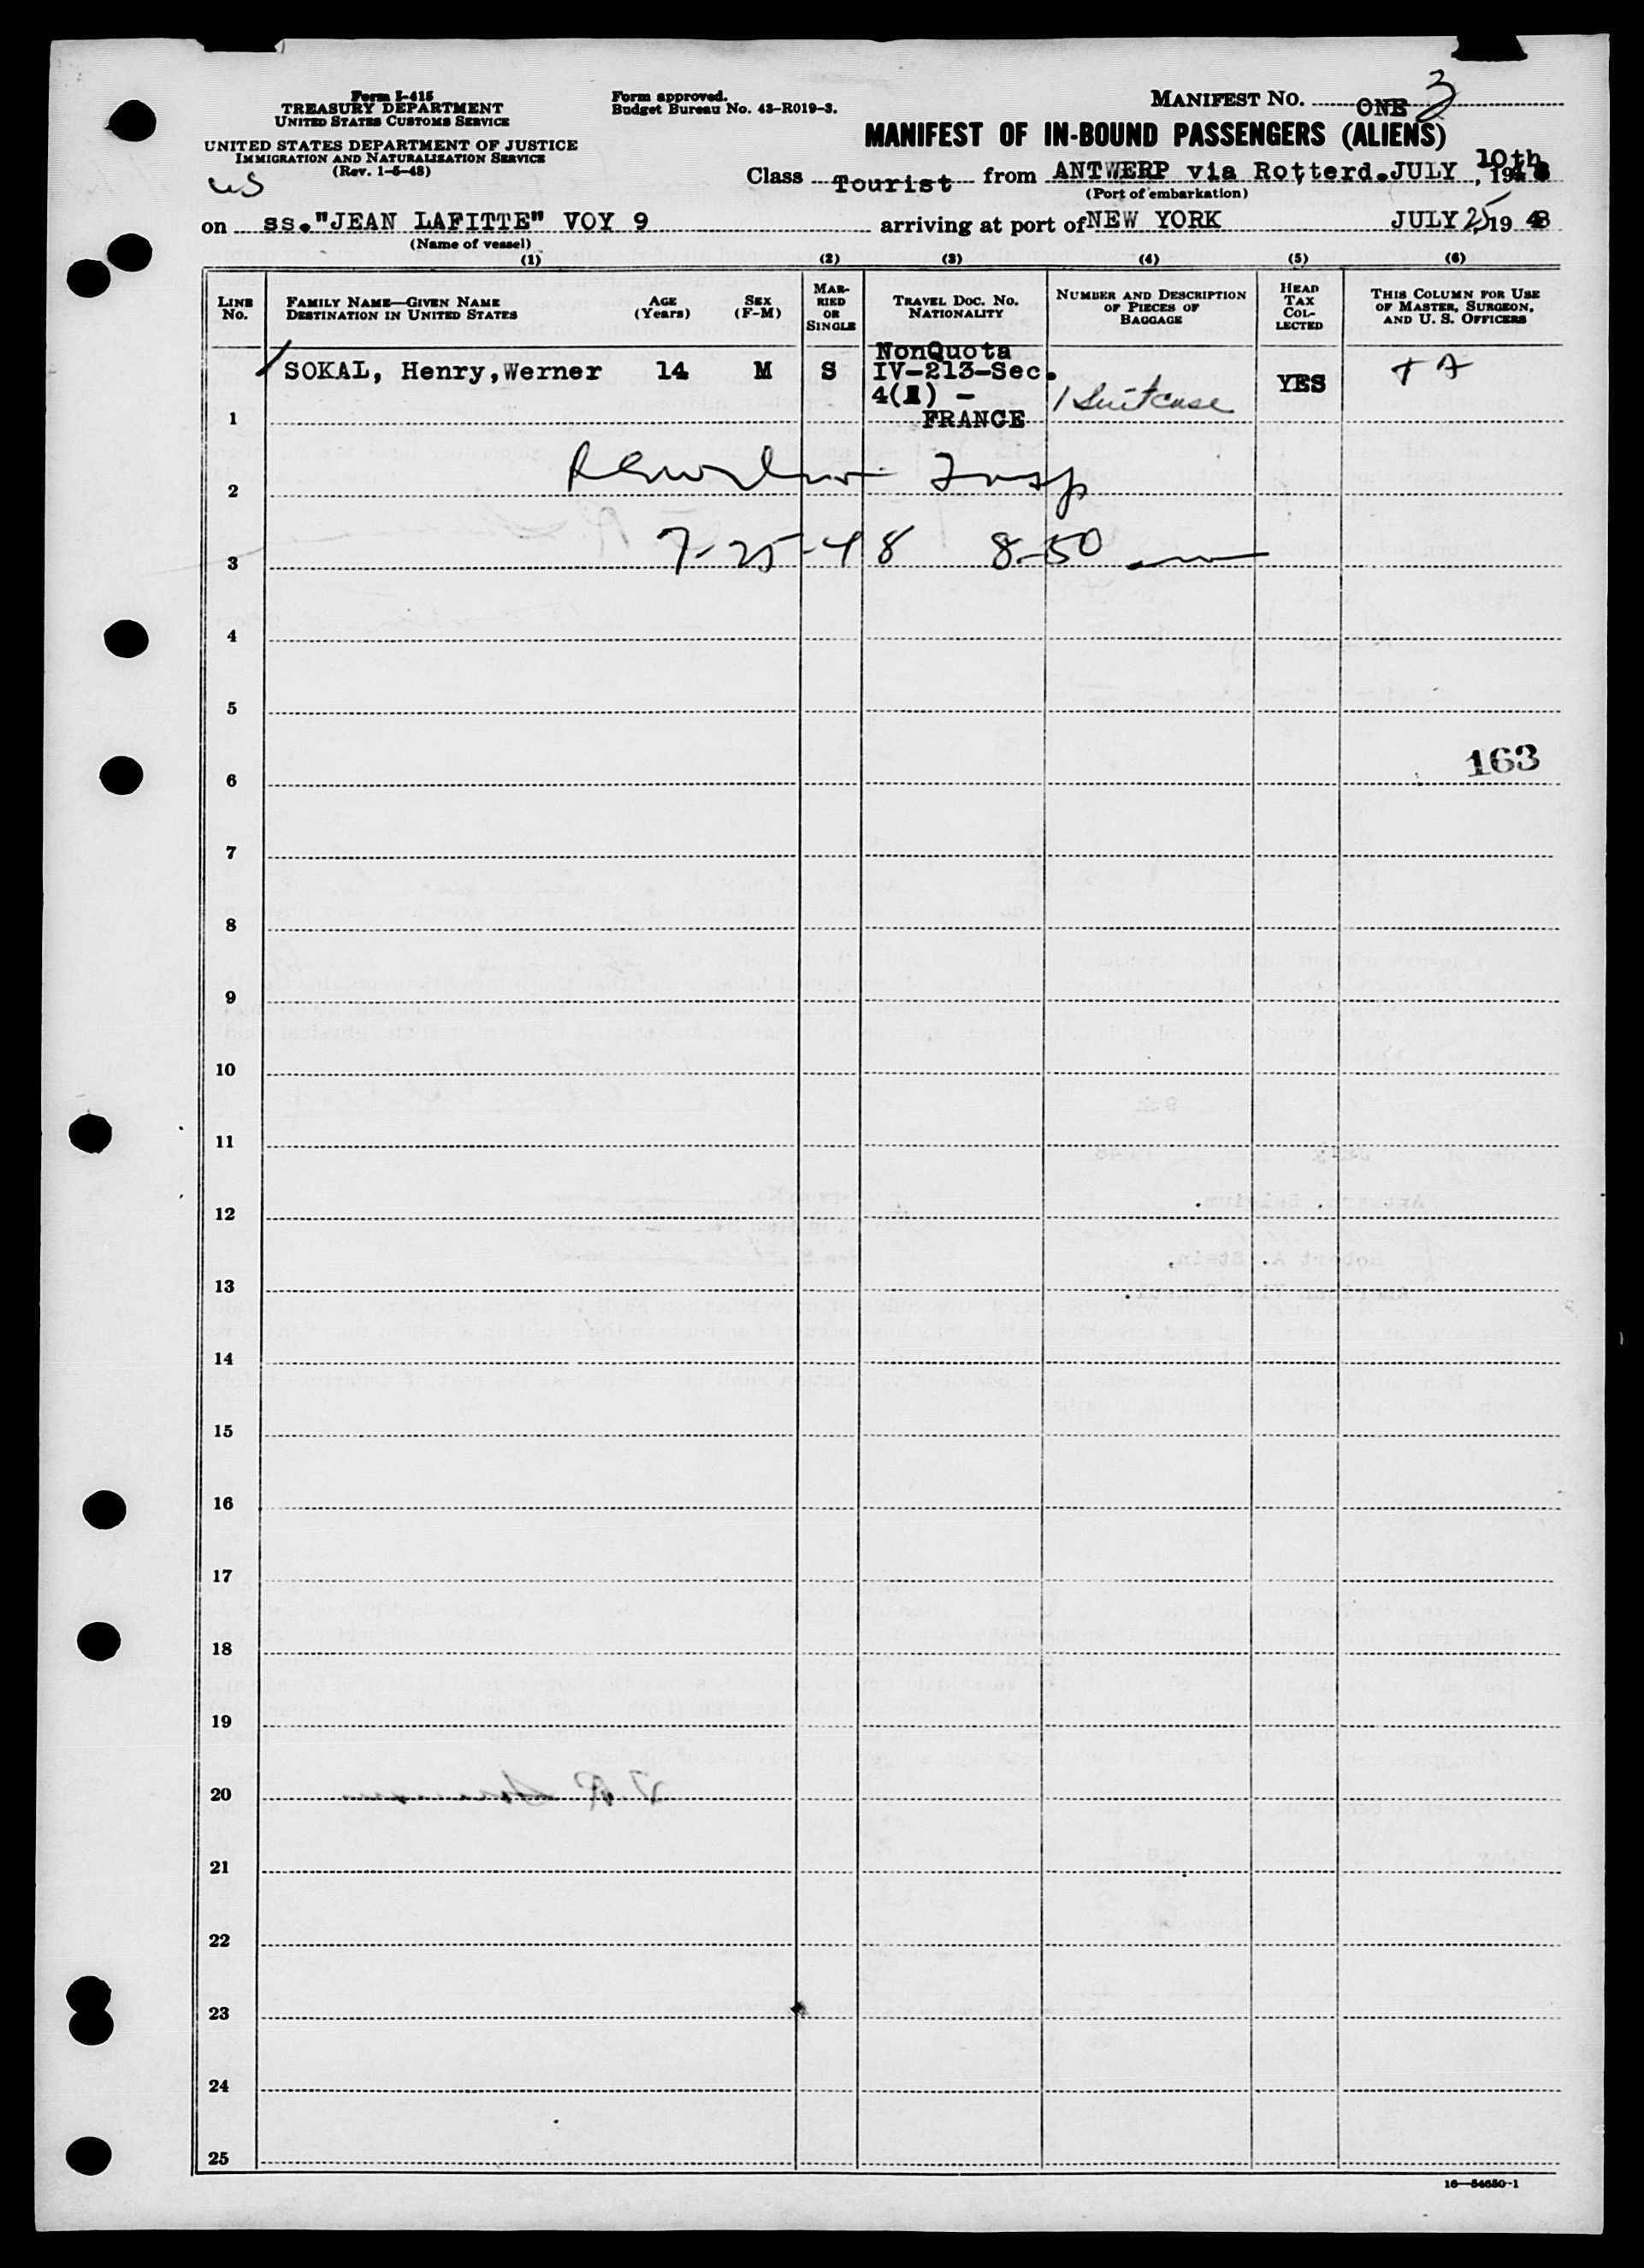 Form I-415
TREASURY DEPARTMENT
UNITED STATES CUSTOMS SERVICE
UNITED STATES DEPARTMENT OF JUSTICE
IMMIGRATION AND NATURALIZATION SERVICE
(Rev. 1-5-48)
US
Form approved.
Budget Bureau No. 43-R019-3.
MANIFEST No. ONE 3
MANIFEST OF IN-BOUND PASSENGERS (ALIENS)
Class Tourist from ANTWERP via Rotterd. JULY 10th, 1948
(Port of embarkation)
on ss."JEAN LAFITTE" VOY 9 arriving at port of NEW YORK JULY 25, 1948
(Name of vessel)
(1) (2) (3) (4) (5) (6)
LINE No. FAMILY NAME—GIVEN NAME DESTINATION IN UNITED STATES AGE (Years) SEX (F-M) MARRIED OR SINGLE TRAVEL DOC. No. NATIONALITY NUMBER AND DESCRIPTION OF PIECES OF BAGGAGE HEAD TAX COLLECTED THIS COLUMN FOR USE OF MASTER, SURGEON, AND U. S. OFFICERS
NonQuota
SOKAL, Henry,Werner 14 M S IV-213-Sec. YES
4( ) - 1 Suitcase
1 FRANCE
2 Insp
3 7-25-48 8-50
4
5
163
6
7
8
9
10
11
12
13
14
15
16
17
18
19
20
21
22
23
24
25
16—54650-1